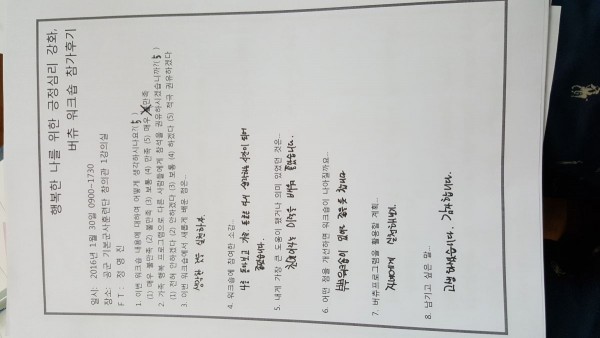 행복한 나를 위한 긍정심리 강화,
버츄 워크숍 참가후기
일시: 2016년 1월 30일 0900~1730
장소: 공군 기본군사훈련단 창의관 1강의실
FT: 정영진
1. 이번 워크숍 내용에 대하여 어떻게 생각하시나요?( 5 )
(1) 매우 불만족 (2) 불만족 (3) 보통 (4) 만족 (5) 매우 만족
2. 가족 행복 프로그램으로 다른 사람들에게 참석을 권유하시겠습니까?( 5 )
(1) 전혀 안하겠다 (2) 안하겠다 (3) 보통 (4) 하겠다 (5) 적극 권유하겠다
3. 이번 워크숍에서 새롭게 배운 점은...
생각한 것을 실천하자.
4. 워크숍에 참여한 소감...
나를 돌아보고 가고, 앞으로 다시 생각하는 시간이 되어
좋았습니다.
5. 내게 가장 큰 도움이 됐거나 의미 있었던 것은...
배려 좋았습니다.
6. 어떤 점을 개선하면 워크숍이 더 나아질까요...
부부워크숍이 있어도 좋을 듯 합니다
7. 버츄프로그램을 활용할 계획...
자녀에게 실천해보기.
8. 남기고 싶은 말...
고생하셨습니다. 감사합니다.